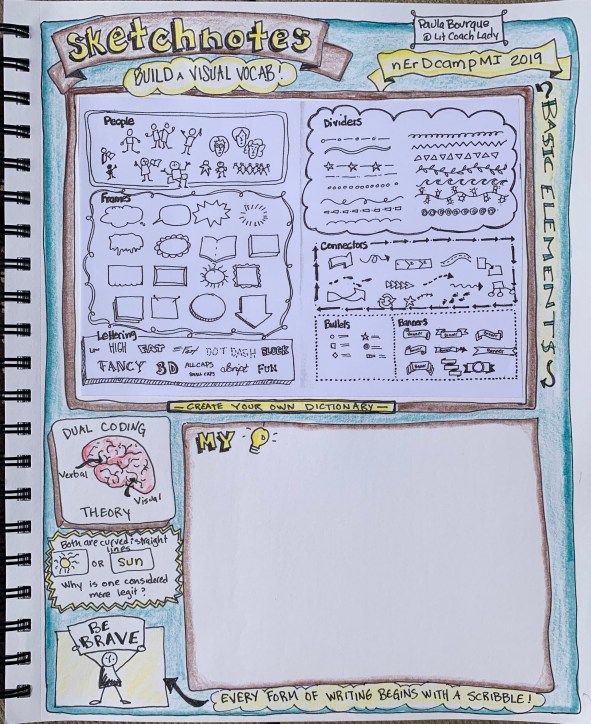 Sketchnotes
BUILD A VISUAL VOCAB!
Paula Bourque
@ Lit Coach Lady
nErDcampMI 2019
BASIC ELEMENTS
People
Dividers
Frames
Connectors
Bullets
Banners
Lettering
Low HIGH FAT FAST DOT DASH BLOCK
FANCY 3D ALL CAPS SMALL CAPS script FUN
CREATE YOUR OWN DICTIONARY
DUAL CODING
Verbal
Visual
THEORY
MY
Both are curved & straight
lines
OR SUN
Why is one considered
more legit?
BE
BRAVE
EVERY FORM OF WRITING BEGINS WITH A SCRIBBLE!